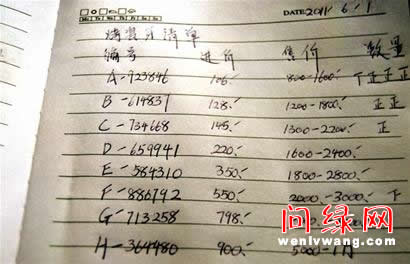 DATE 2011/6/1
清单
编号 进价 售价 数量
A-923846 106.- 800-1600.- 下正正正
B-614837 128.- 1200-1800.- 正正
C-734668 145.- 1300-2200.- 正
D-659941 220.- 1600-2400.-
E-584310 350.- 1800-2800.-
F-886792 550.- 2000-3000.- 下
G-713258 798.-
H-364480 900.- 5000-1万
问绿网
wenlvwang.com